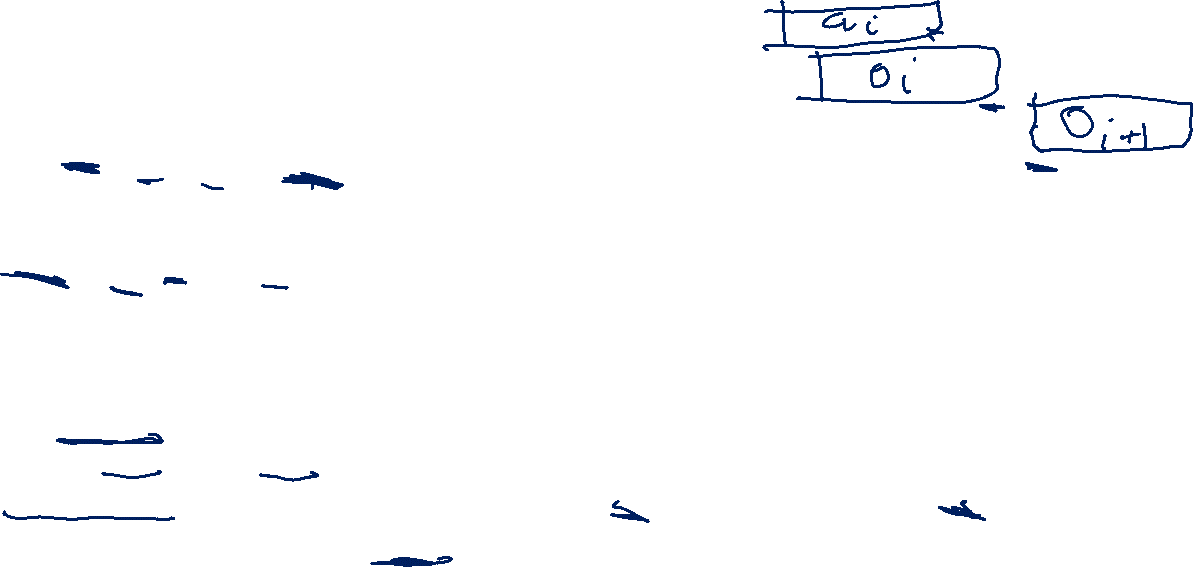 a_i
o_i
O_{i+1}